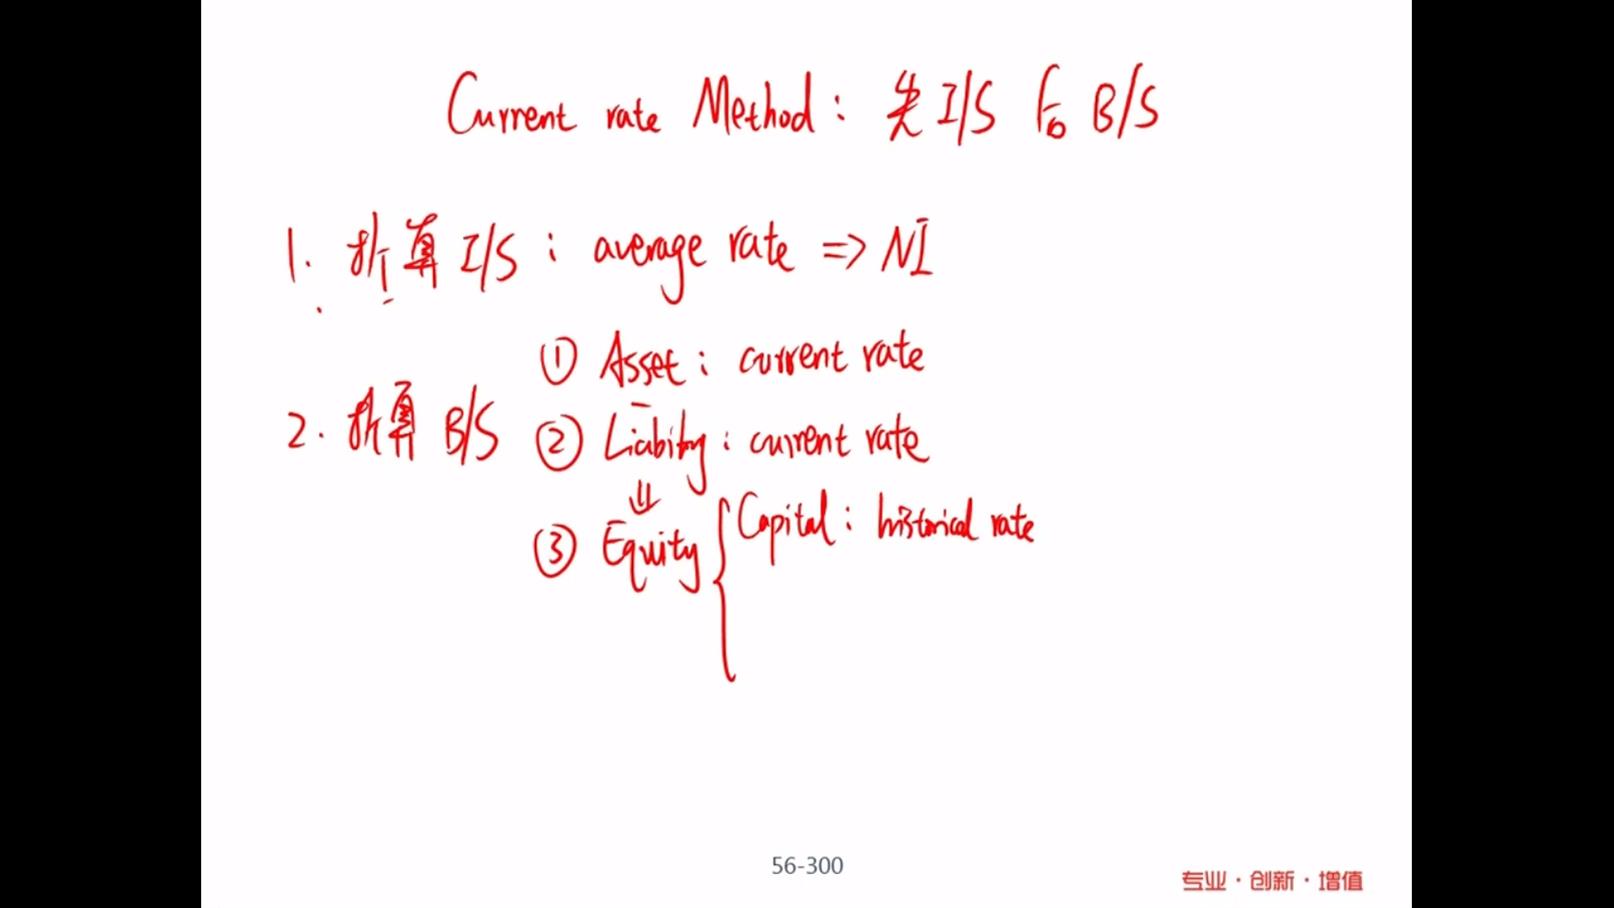 Current rate Method：先 I/S 后 B/S
1. 折算 I/S：average rate => NI
① Asset：current rate
2. 折算 B/S ② Liability：current rate
⇓
③ Equity { Capital：historical rate
56-300
专业·创新·增值